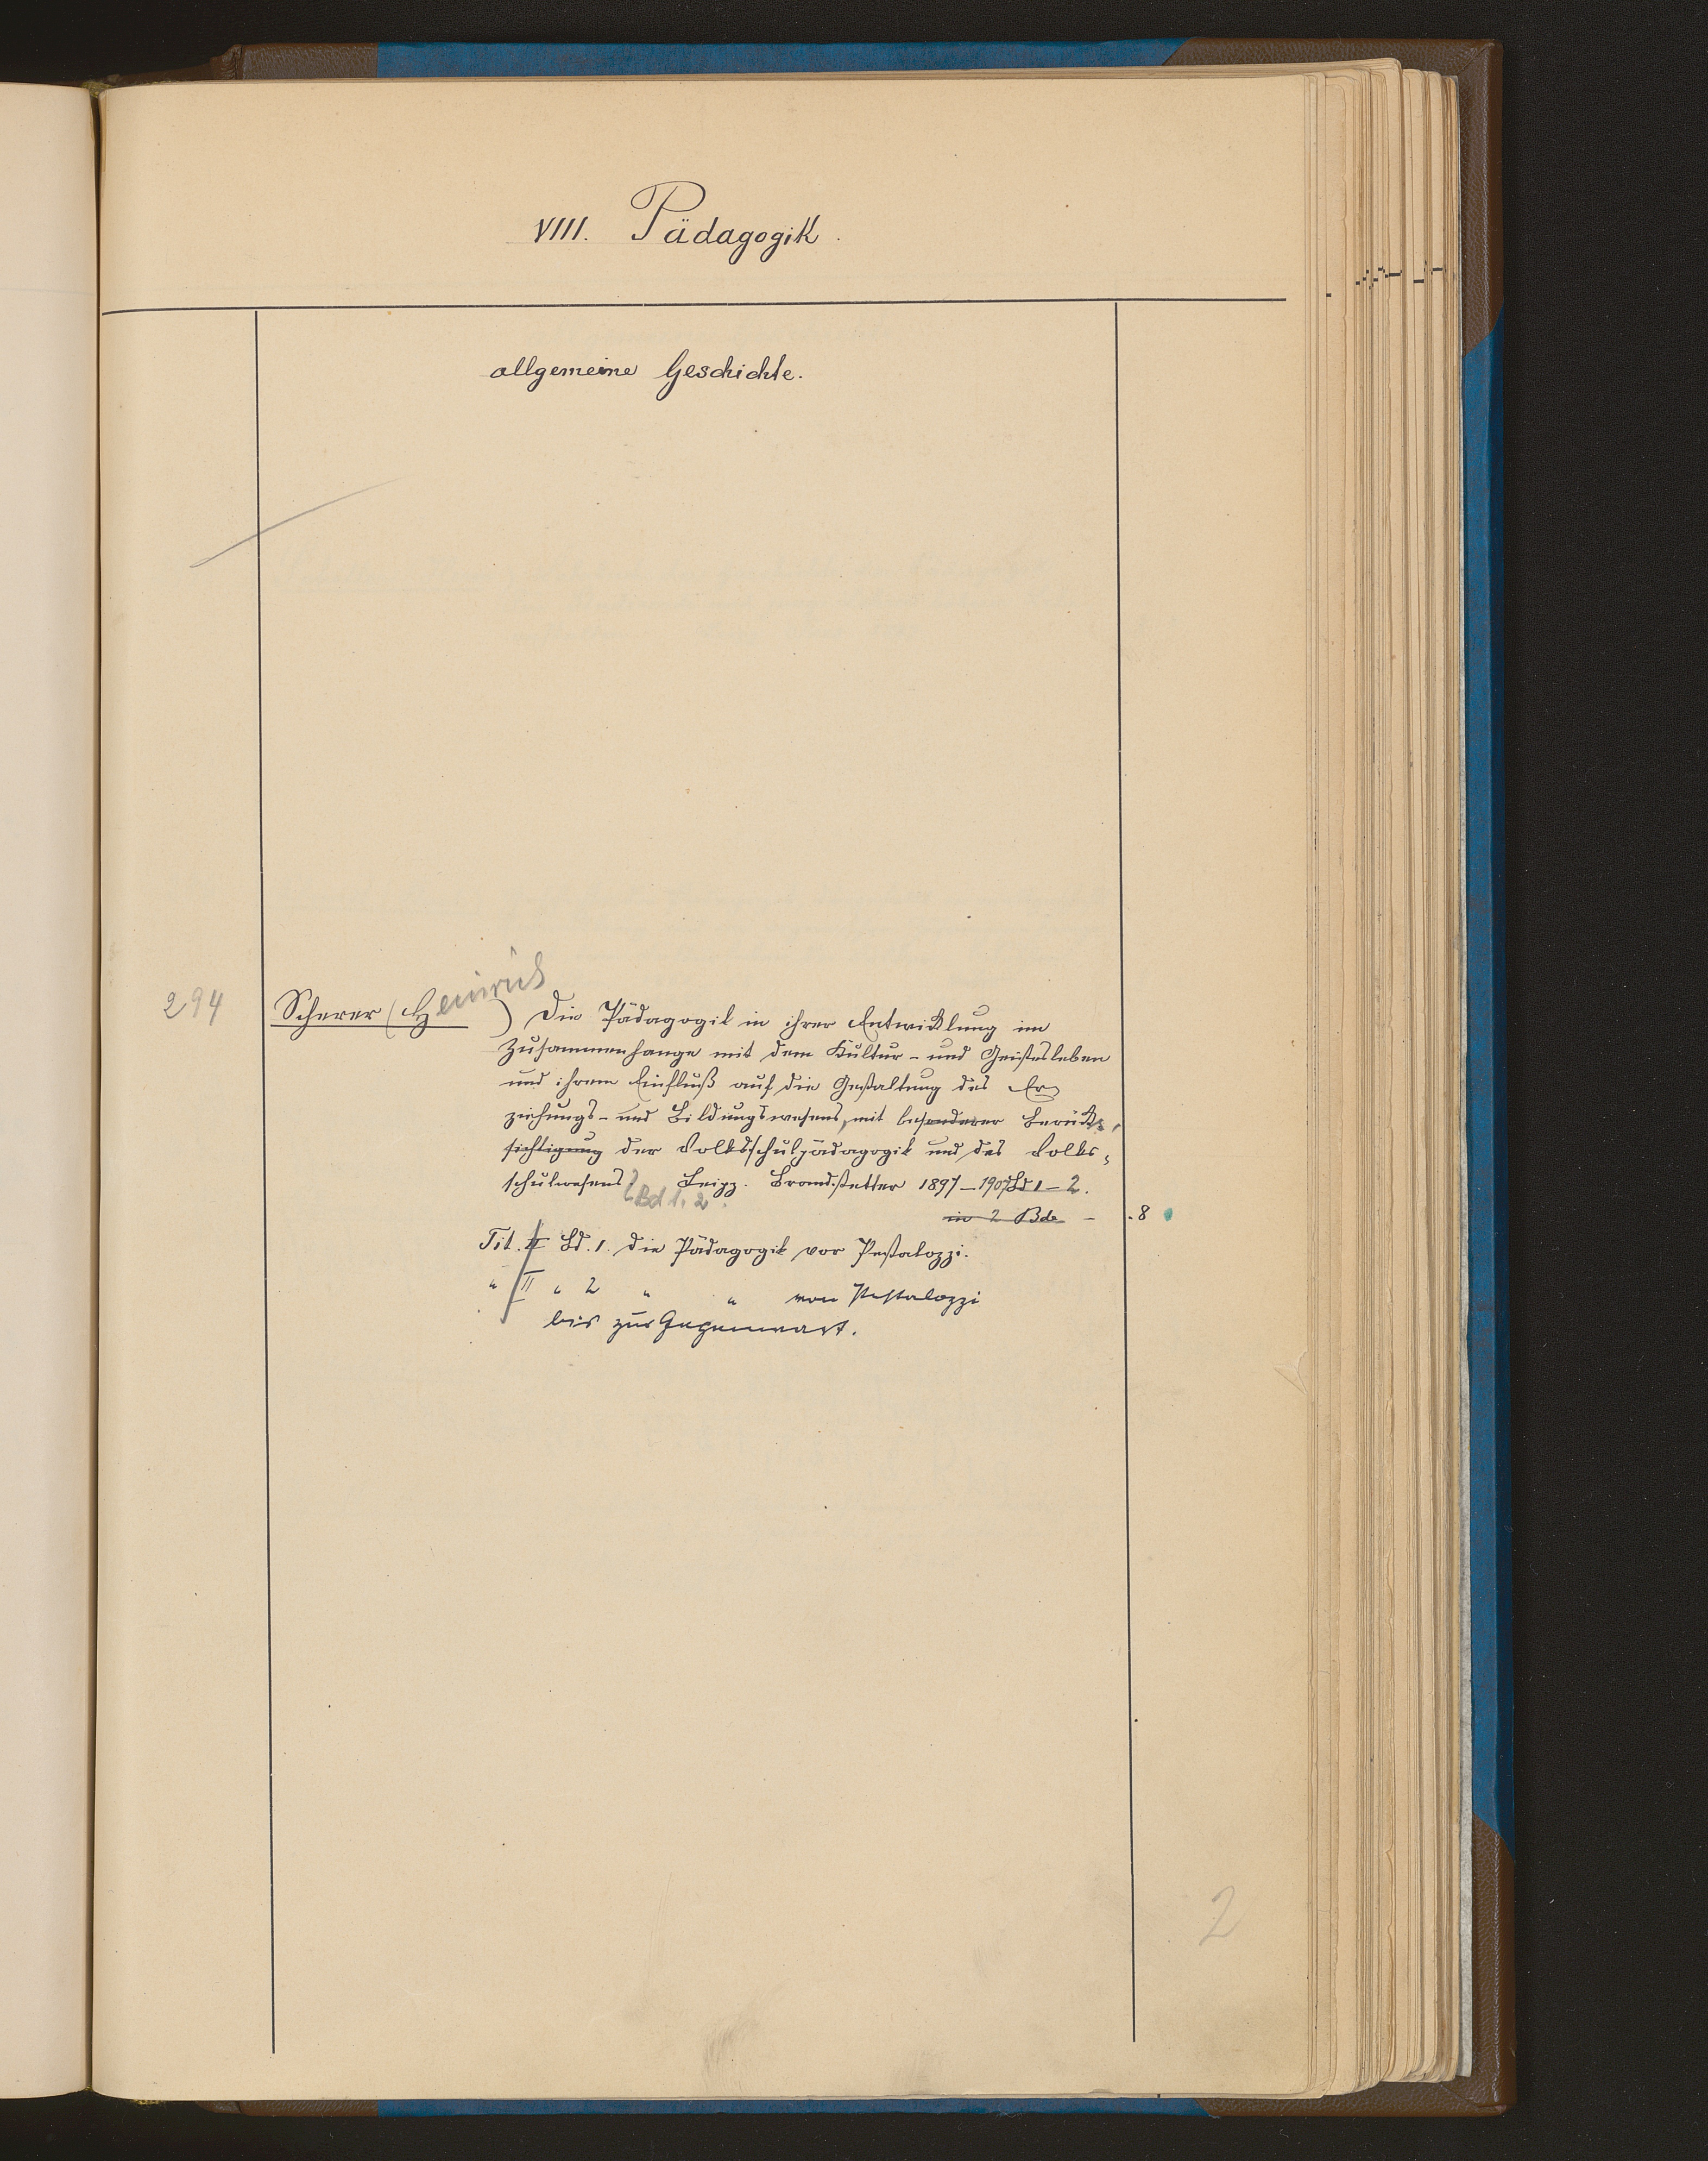 VIII. Pädagogik.
allgemeine Geschichte.
294 Scherer (Heinrich) Die Pädagogik in ihrer Entwicklung im
Zusammenhange mit dem Kultur- und Geistesleben
und ihrem Einfluß auf die Gestaltung des Er
ziehungs- und Bildungswesens, mit besonderer Berück-
sichtigung der Volksschulpädagogik und des Volks-
schulwesens. Leipz. Brandstetter 1897-1907 Bd 1-2.
Bd 1. 2
in 2 Bde - .8
Tit. II Bd. 1. Die Pädagogik vor Pestalozzi.
" II " 2 " " von Pestalozzi
bis zur Gegenwart.
2